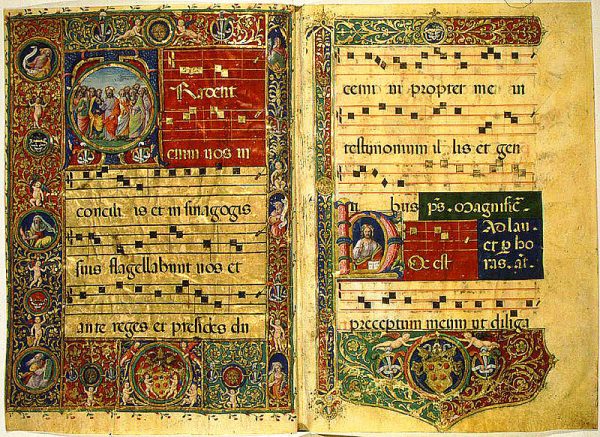 Radent
enim vos in
concili is et in sinagogis
suis flagellabunt vos et
ante reges et presides du
cemi ni propter me in
testimonium il lis et gen
ti bus ps. Magnific.
Ad lau
et p ho
Hoc est ras. añ.
preceptum meum ut diliga